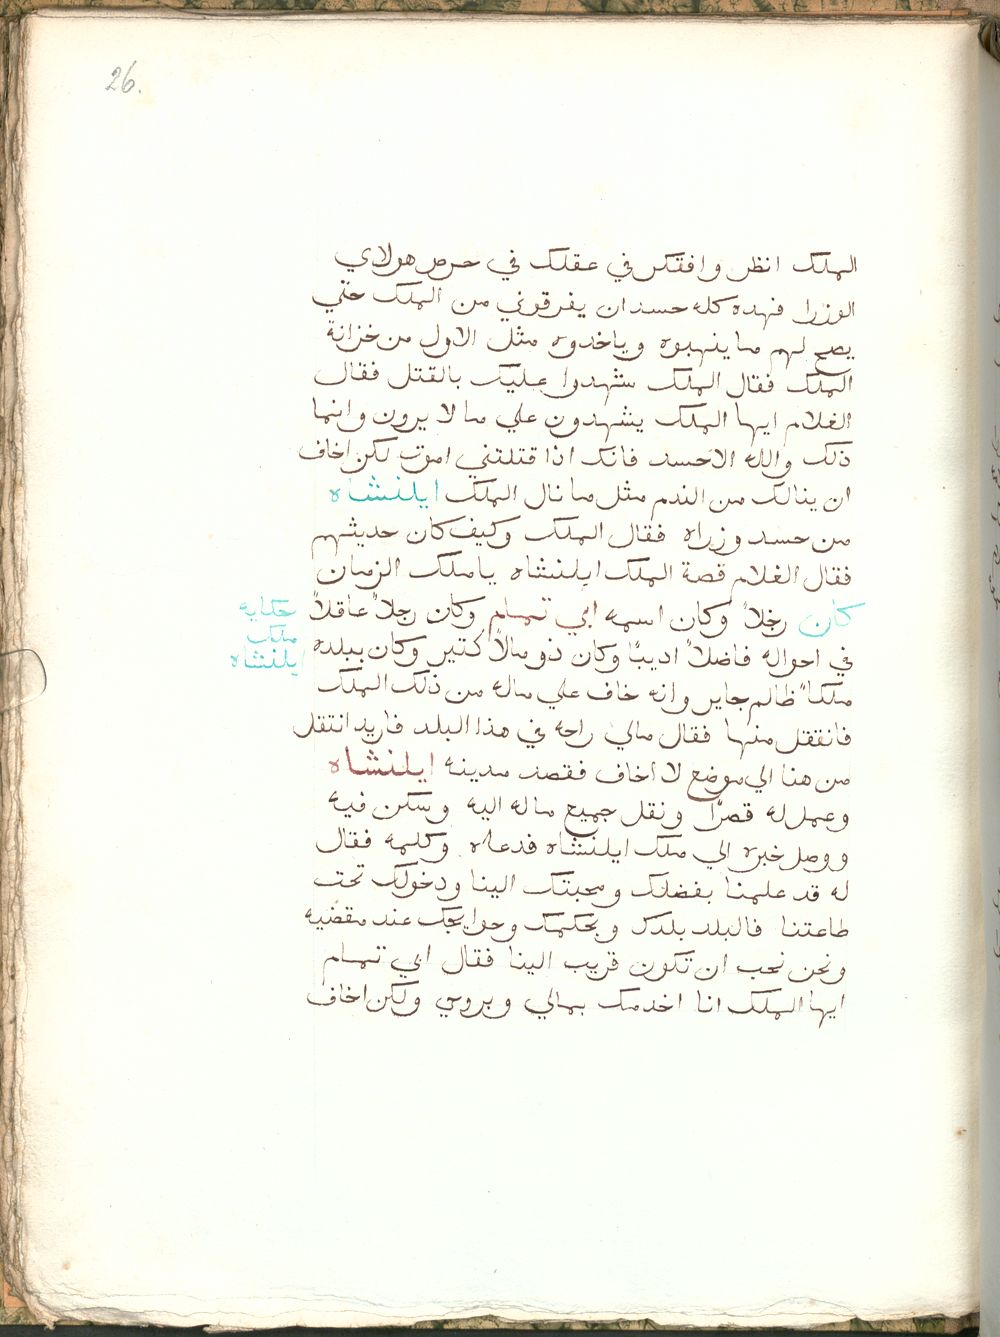 26.
الملك انظر وافتكر في عقلك في حرص هولاي
الوزرا فهده كله حسد ان يفرقوني من الملك حتي
يصح لهم ما ينهبوه وياخدوه مثل الاول من خزانة
الملك فقال الملك شهدوا عليك بالقتل فقال
الغلام ايها الملك يشهدون علي ما لا يرون وانما
ذلك والله الاحسد فانك اذا قتلتني اموت لكن اخاف
ان ينالك من الندم مثل ما نال الملك ايلنشاه
من حسد وزراه فقال الملك وكيف كان حديثهم
فقال الغلام قصة الملك ايلنشاه يا ملك الزمان
كان رجلاً وكان اسمه ابي تمام وكان رجلاً عاقلاً
حكايه
ملك
ايلنشاه
في احواله فاضلاً اديبًا وكان ذو مالاً كتير وكان ببلده
ملكاً ظالم جاير وانه خاف علي ماله من ذلك الملك
فانقفل منها فقال مالي راحه في هذا البلد فاريد انتقل
من هنا الي موضع لا اخاف فقصد مدينه ايلنشاه
وعمل له قصرًا ونقل جميع ماله اليه وسكن فيه
ووصل خبره الي ملك ايلنشاه فدعاه وكلمه فقال
له قد علمنا بفضلك ومحبتك الينا ودخولك تحت
طاعتنا فالبلد بلدك وبحكمك وحوايجك عند مقضيه
ونحن نحب ان تكون قريب الينا فقال ابي تمام
ايها الملك انا اخدمك بمالي وبروحي ولكن اخاف